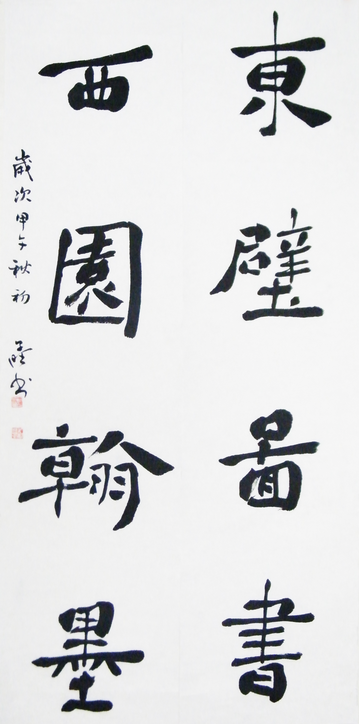 東壁啚書
西園翰墨
歲次甲午秋初
書